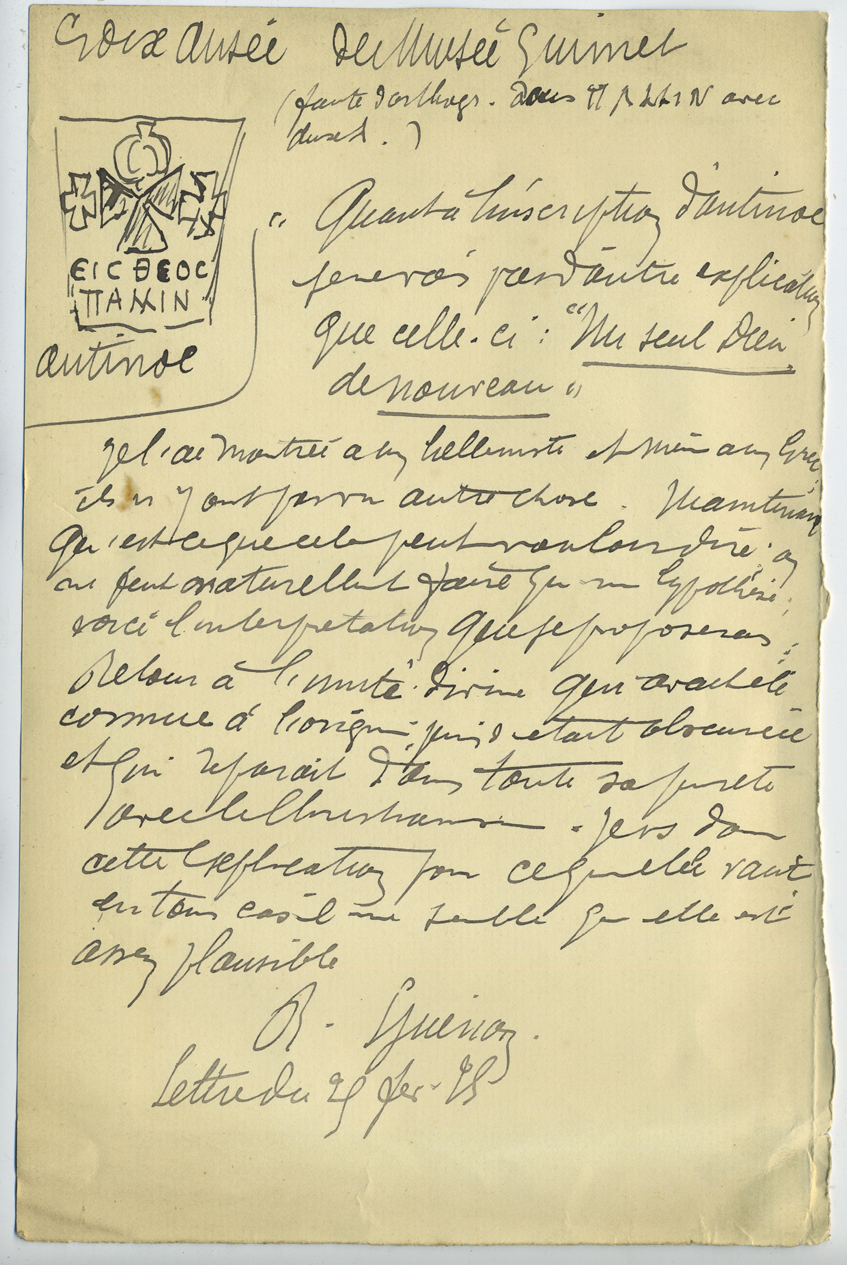 Croix ansée du Musée Guimet
(faute d'orthogr. dans ΠΑΛΛΙΝ avec
deux Λ.)
ЄIC ΘЄOC
ΠΑΛΛΙΝ
antinoe
" Quant à l'inscription d'antinoe
je ne vois pas d'autre explication
que celle-ci : "Un seul Dieu
de nouveau "
Je l'ai montrée à un helleniste et même à un Grec,
ils n'y ont pas vu autre chose. Maintenant
qu'est ce que cela peut vouloir dire; on
ne peut naturellement faire qu'une hypothèse;
voici l'interpretation que je proposerais :
Retour à l'unité divine qui avait été
connue à l'origine, puis s'était obscurcie
et qui reparait dans toute sa pureté
avec le Christianisme. Je vs donne
cette explication pour ce qu'elle vaut
en tous cas il me semble qu'elle est
assez plausible
R. Guénon.
Lettre du fev.